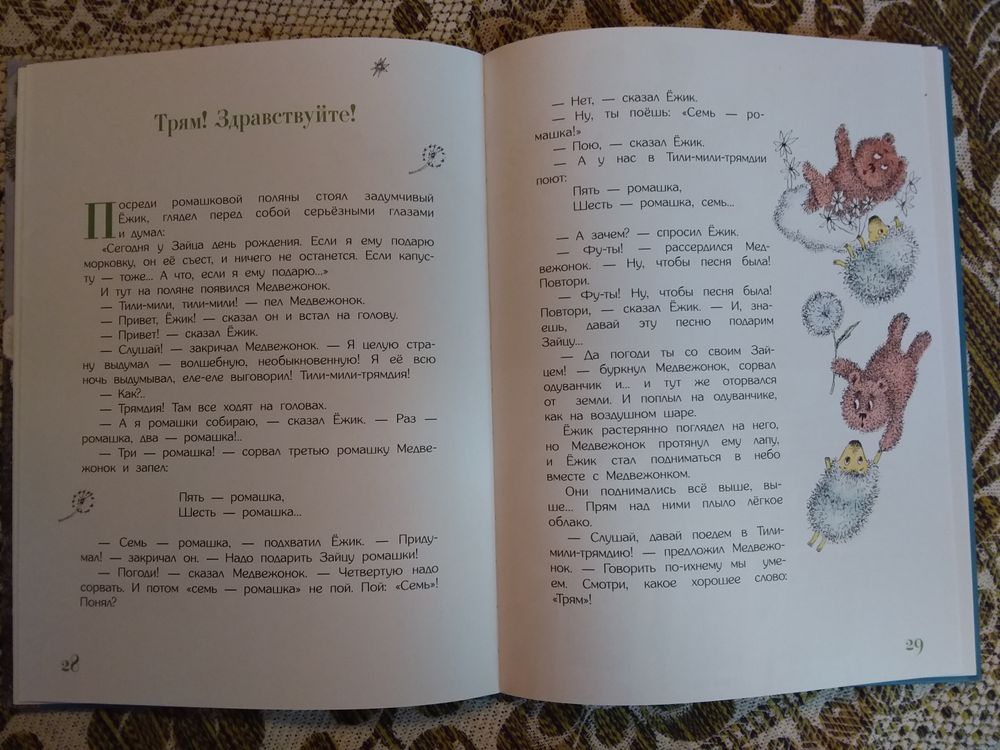 Трям! Здравствуйте!
Посреди ромашковой поляны стоял задумчивый
Ёжик, глядел перед собой серьёзными глазами
и думал:
«Сегодня у Зайца день рождения. Если я ему подарю
морковку, он её съест, и ничего не останется. Если капус-
ту — тоже... А что, если я ему подарю...»
И тут на поляне появился Медвежонок.
— Тили-мили, тили-мили! — пел Медвежонок.
— Привет, Ёжик! — сказал он и встал на голову.
— Привет! — сказал Ёжик.
— Слушай! — закричал Медвежонок. — Я целую стра-
ну выдумал — волшебную, необыкновенную! Я её всю
ночь выдумывал, еле-еле выговорил! Тили-мили-трямдия!
— Как?..
— Трямдия! Там все ходят на головах.
— А я ромашки собираю, — сказал Ёжик. — Раз —
ромашка, два — ромашка!..
— Три — ромашка! — сорвал третью ромашку Медве-
жонок и запел:
Пять — ромашка,
Шесть — ромашка...
— Семь — ромашка, — подхватил Ёжик. — Приду-
мал! — закричал он. — Надо подарить Зайцу ромашки!
— Погоди! — сказал Медвежонок. — Четвертую надо
сорвать. И потом «семь — ромашка» не пой. Пой: «Семь»!
Понял?
28
— Нет, — сказал Ёжик.
— Ну, ты поёшь: «Семь — ро-
машка!»
— Пою, — сказал Ёжик.
— А у нас в Тили-мили-трямдии
поют:
Пять — ромашка,
Шесть — ромашка, семь...
— А зачем? — спросил Ёжик.
— Фу-ты! — рассердился Мед-
вежонок. — Ну, чтобы песня была!
Повтори.
— Фу-ты! Ну, чтобы песня была!
Повтори, — сказал Ёжик. — И, зна-
ешь, давай эту песню подарим
Зайцу...
— Да погоди ты со своим Зай-
цем! — буркнул Медвежонок, сорвал
одуванчик и... и тут же оторвался
от земли. И поплыл на одуванчике,
как на воздушном шаре.
Ёжик растерянно поглядел на него,
но Медвежонок протянул ему лапу,
и Ёжик стал подниматься в небо
вместе с Медвежонком.
Они поднимались всё выше, вы-
ше... Прям над ними плыло лёгкое
облако.
— Слушай, давай поедем в Тили-
мили-трямдию! — предложил Медвежо-
нок. — Говорить по-ихнему мы уме-
ем. Смотри, какое хорошее слово:
«Трям»!
29